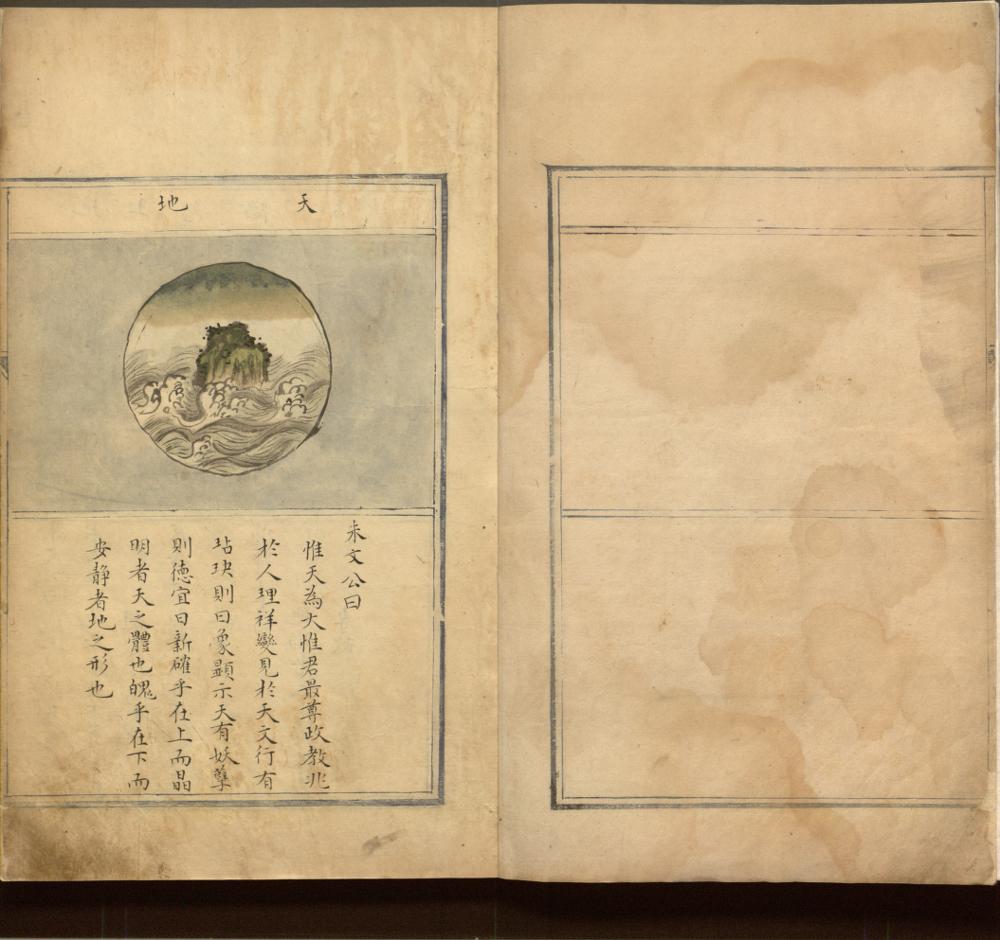 天地
朱文公曰
惟天為大惟君最尊政教兆
於人理祥變見於天文行有
玷玦則曰象顯示天有妖孽
則德宜日新確乎在上而晶
明者天之體也隗乎在下而
安静者地之形也